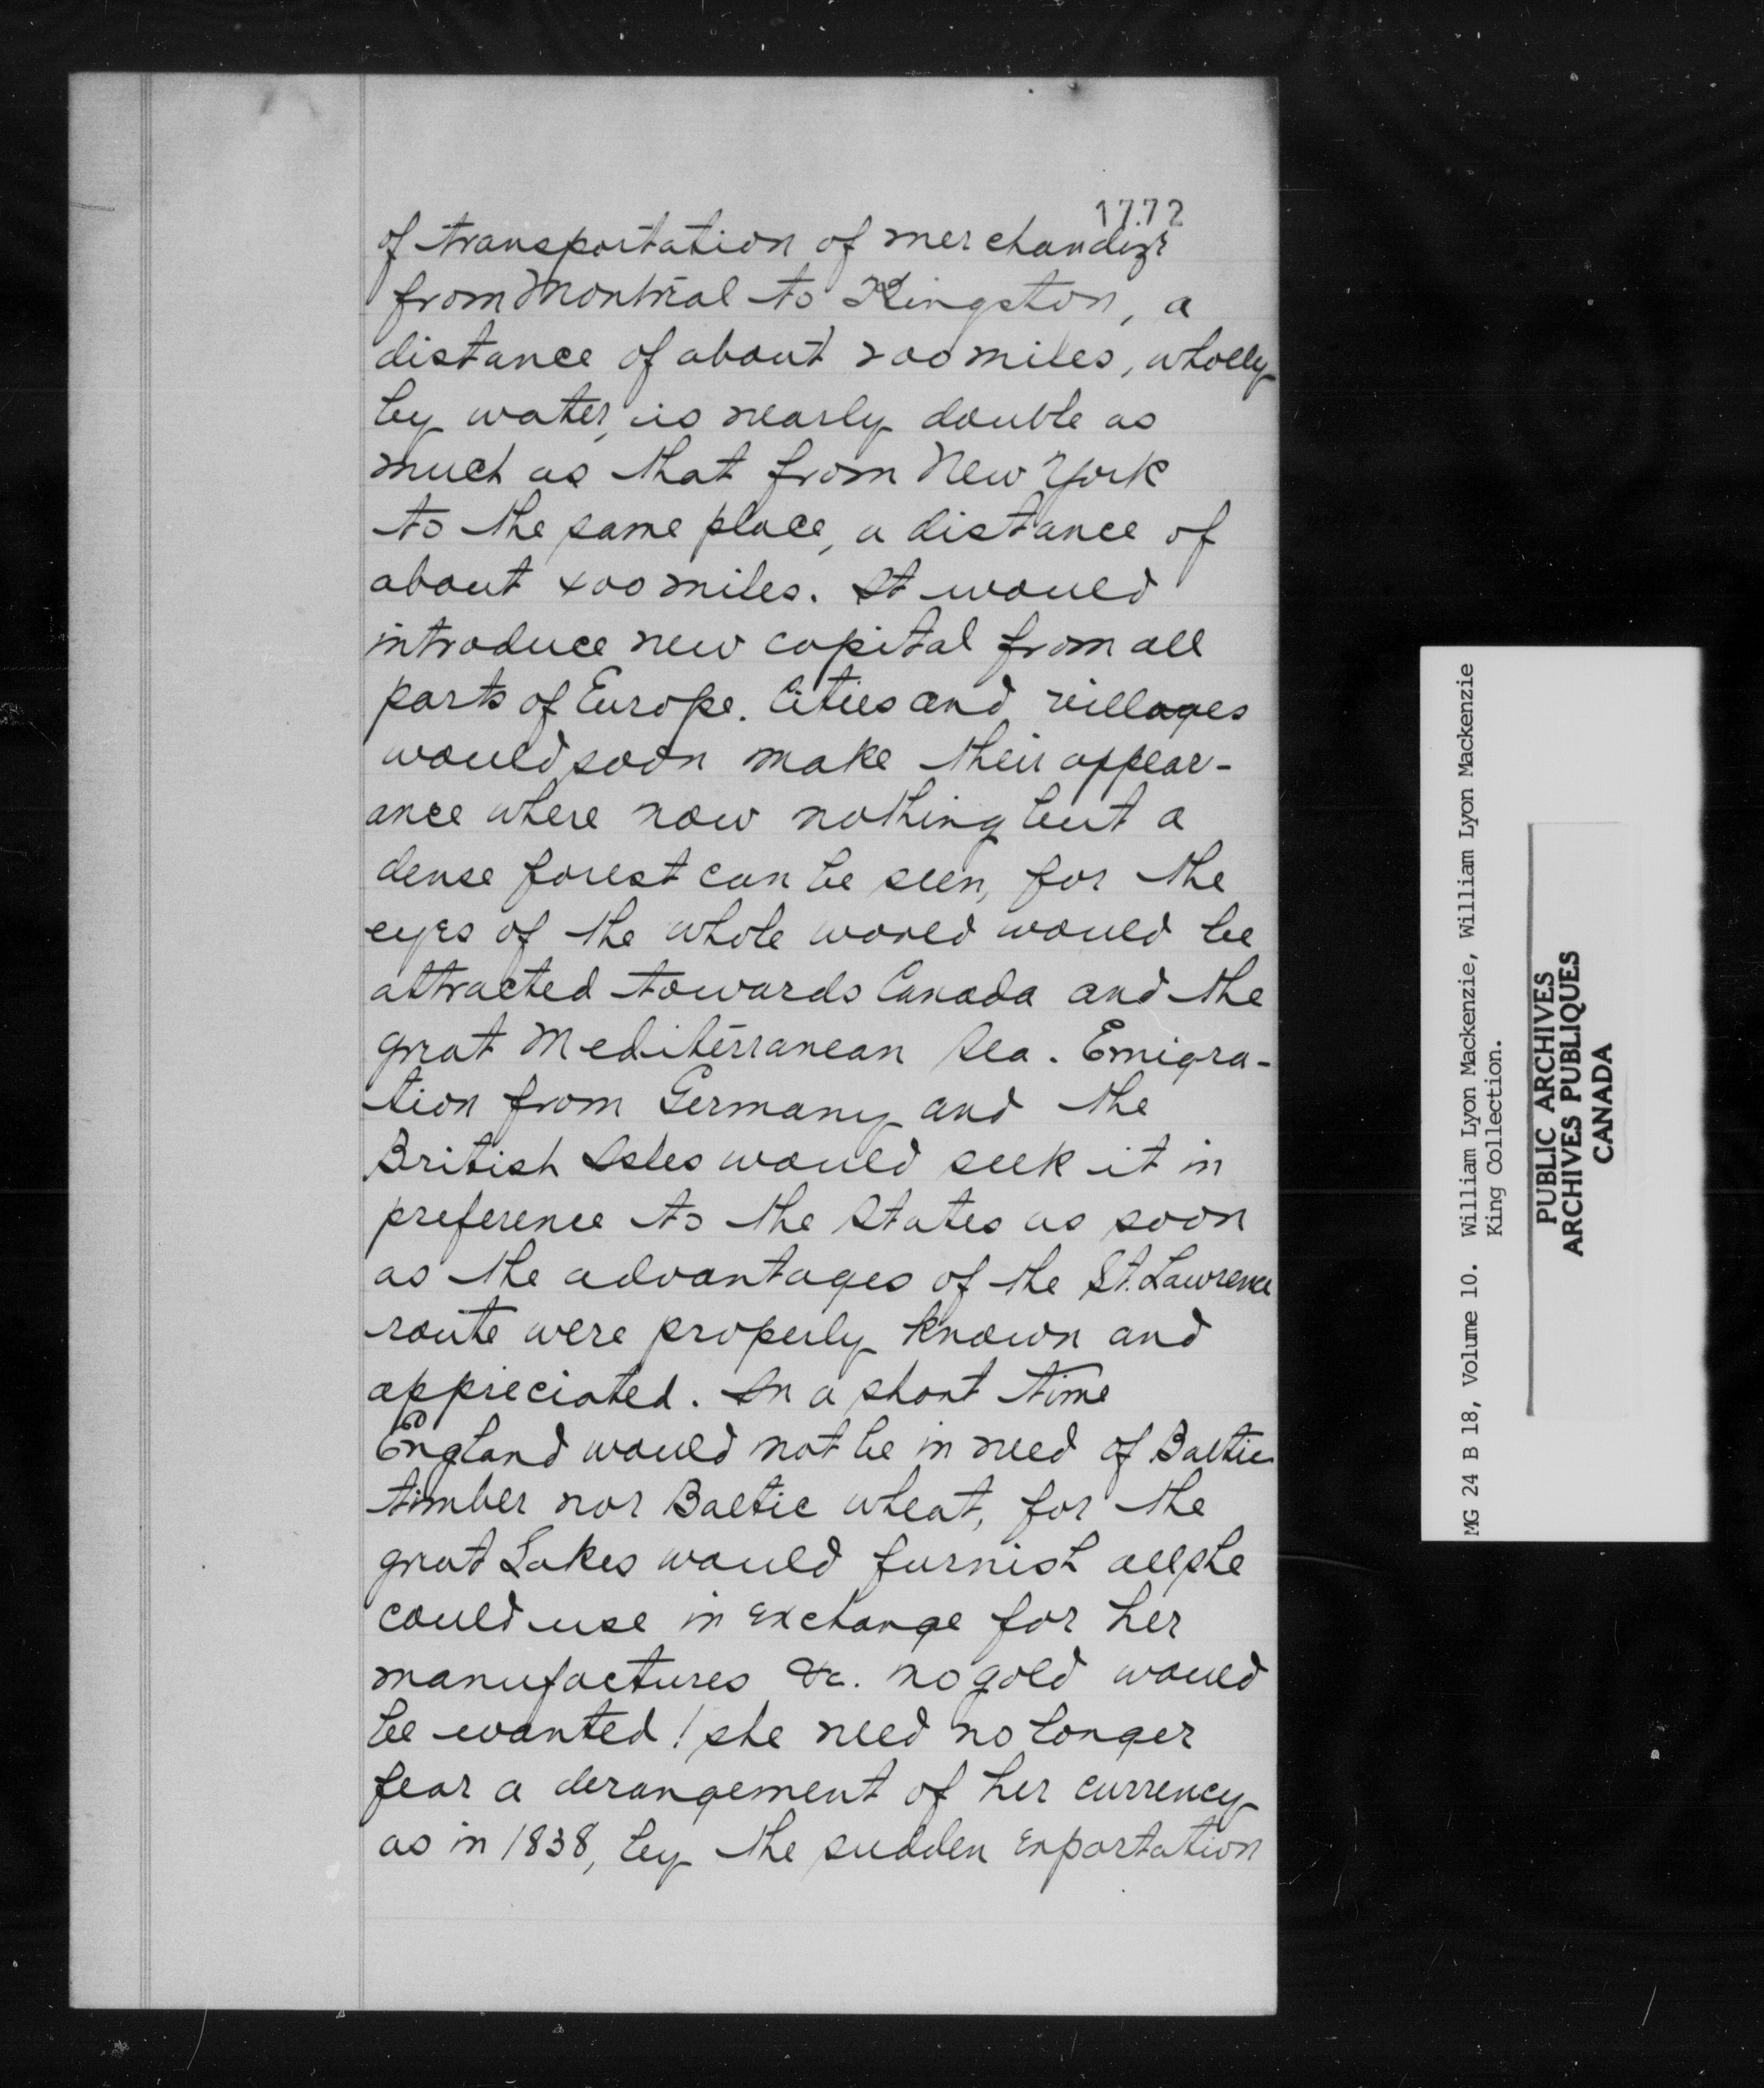 1772
of transportation of merchandize
from Montreal to Kingston, a
distance of about 200 miles, wholly
by water, is nearly double as
much as that from New York
to the same place, a distance of
about 400 miles. It would
introduce new capital from all
parts of Europe. Cities and villages
would soon make their appear-
ance where now nothing but a
dense forest can be seen, for the
eyes of the whole world would be
attracted towards Canada and the
great Mediterranean Sea. Emigra-
tion from Germany and the
British Isles would seek it in
preference to the States as soon
as the advantages of the St. Lawrence
route were properly known and
appreciated. In a short time
England would not be in need of Baltic
timber nor Baltic wheat, for the
great Lakes would furnish all she
could use in exchange for her
manufactures &c. no gold would
be wanted! she need no longer
fear a derangement of her currency
as in 1838, by the sudden exportation
MG 24 B 18, Volume 10. William Lyon Mackenzie, William Lyon Mackenzie
King Collection.
PUBLIC ARCHIVES
ARCHIVES PUBLIQUES
CANADA